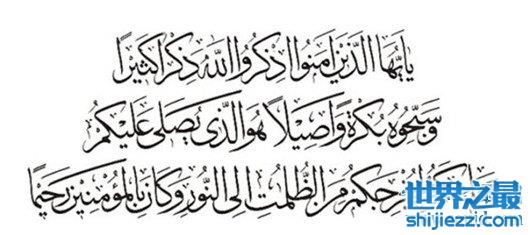 يٰٓاَيُّهَا الَّذِيْنَ اٰمَنُوا اذْكُرُوا اللّٰهَ ذِكْرًا كَثِيْرًا
وَّسَبِّحُوْهُ بُكْرَةً وَّاَصِيْلًا هُوَ الَّذِيْ يُصَلِّيْ عَلَيْكُمْ
مِّنَ الظُّلُمٰتِ اِلَى النُّوْرِ وَكَانَ بِالْمُؤْمِنِيْنَ رَحِيْمًا
世界之最
shijiezz.com